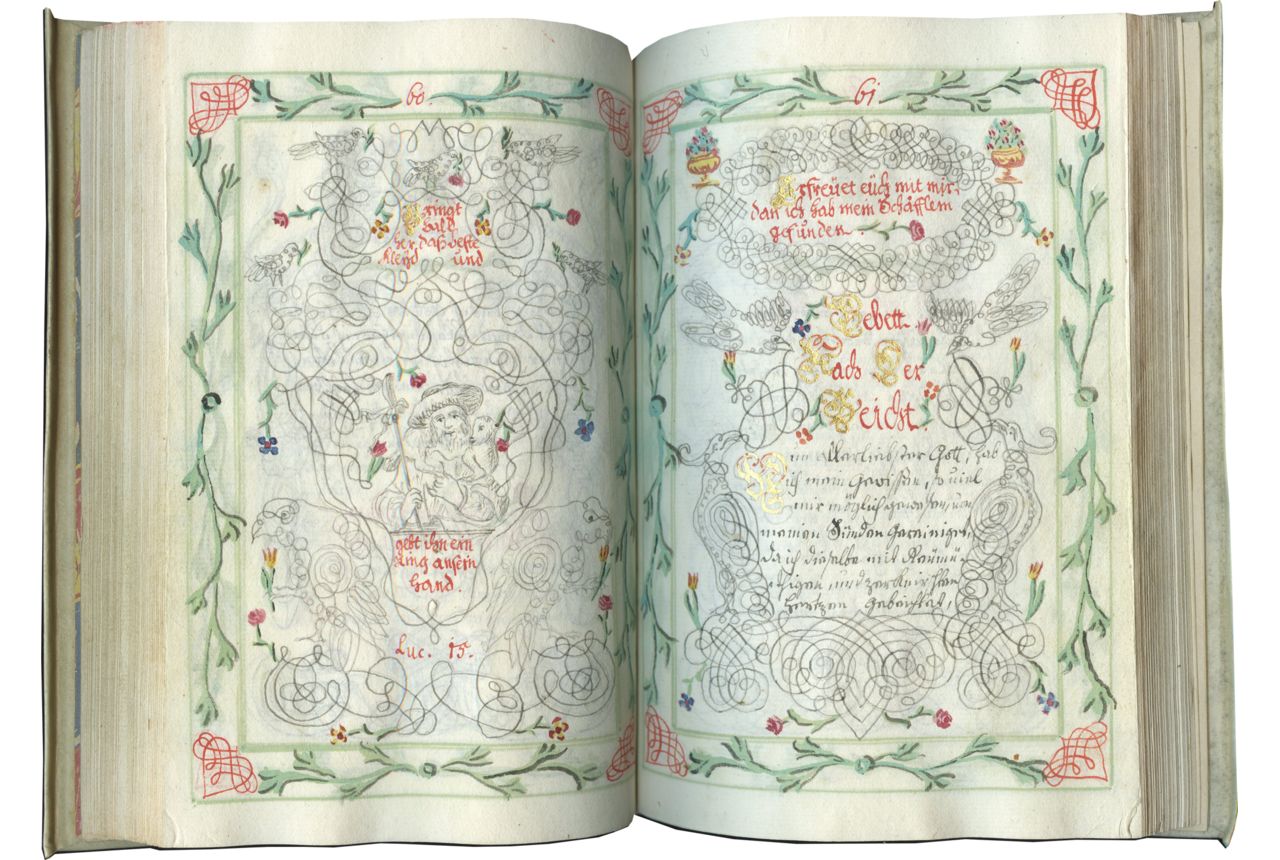 60.
Bringt
ball
her, daß beste
Kleyd und
gebt ihm ein
Ring an sein
hand.
Luc. 15.
61
Erfreuet euch mit mir,
dan ich hab mein Schäfflein
gefunden.
Gebett
Nach Der
Beicht
Mein allerliebster Gott, hab
ich mein Gewißen, so viel
mir möglich gewesen, von
meinen Sünden Gereiniget,
da ich dieselbe mit Reümü-
thigen und zerknirschten
Hertzen Gebeichtet,